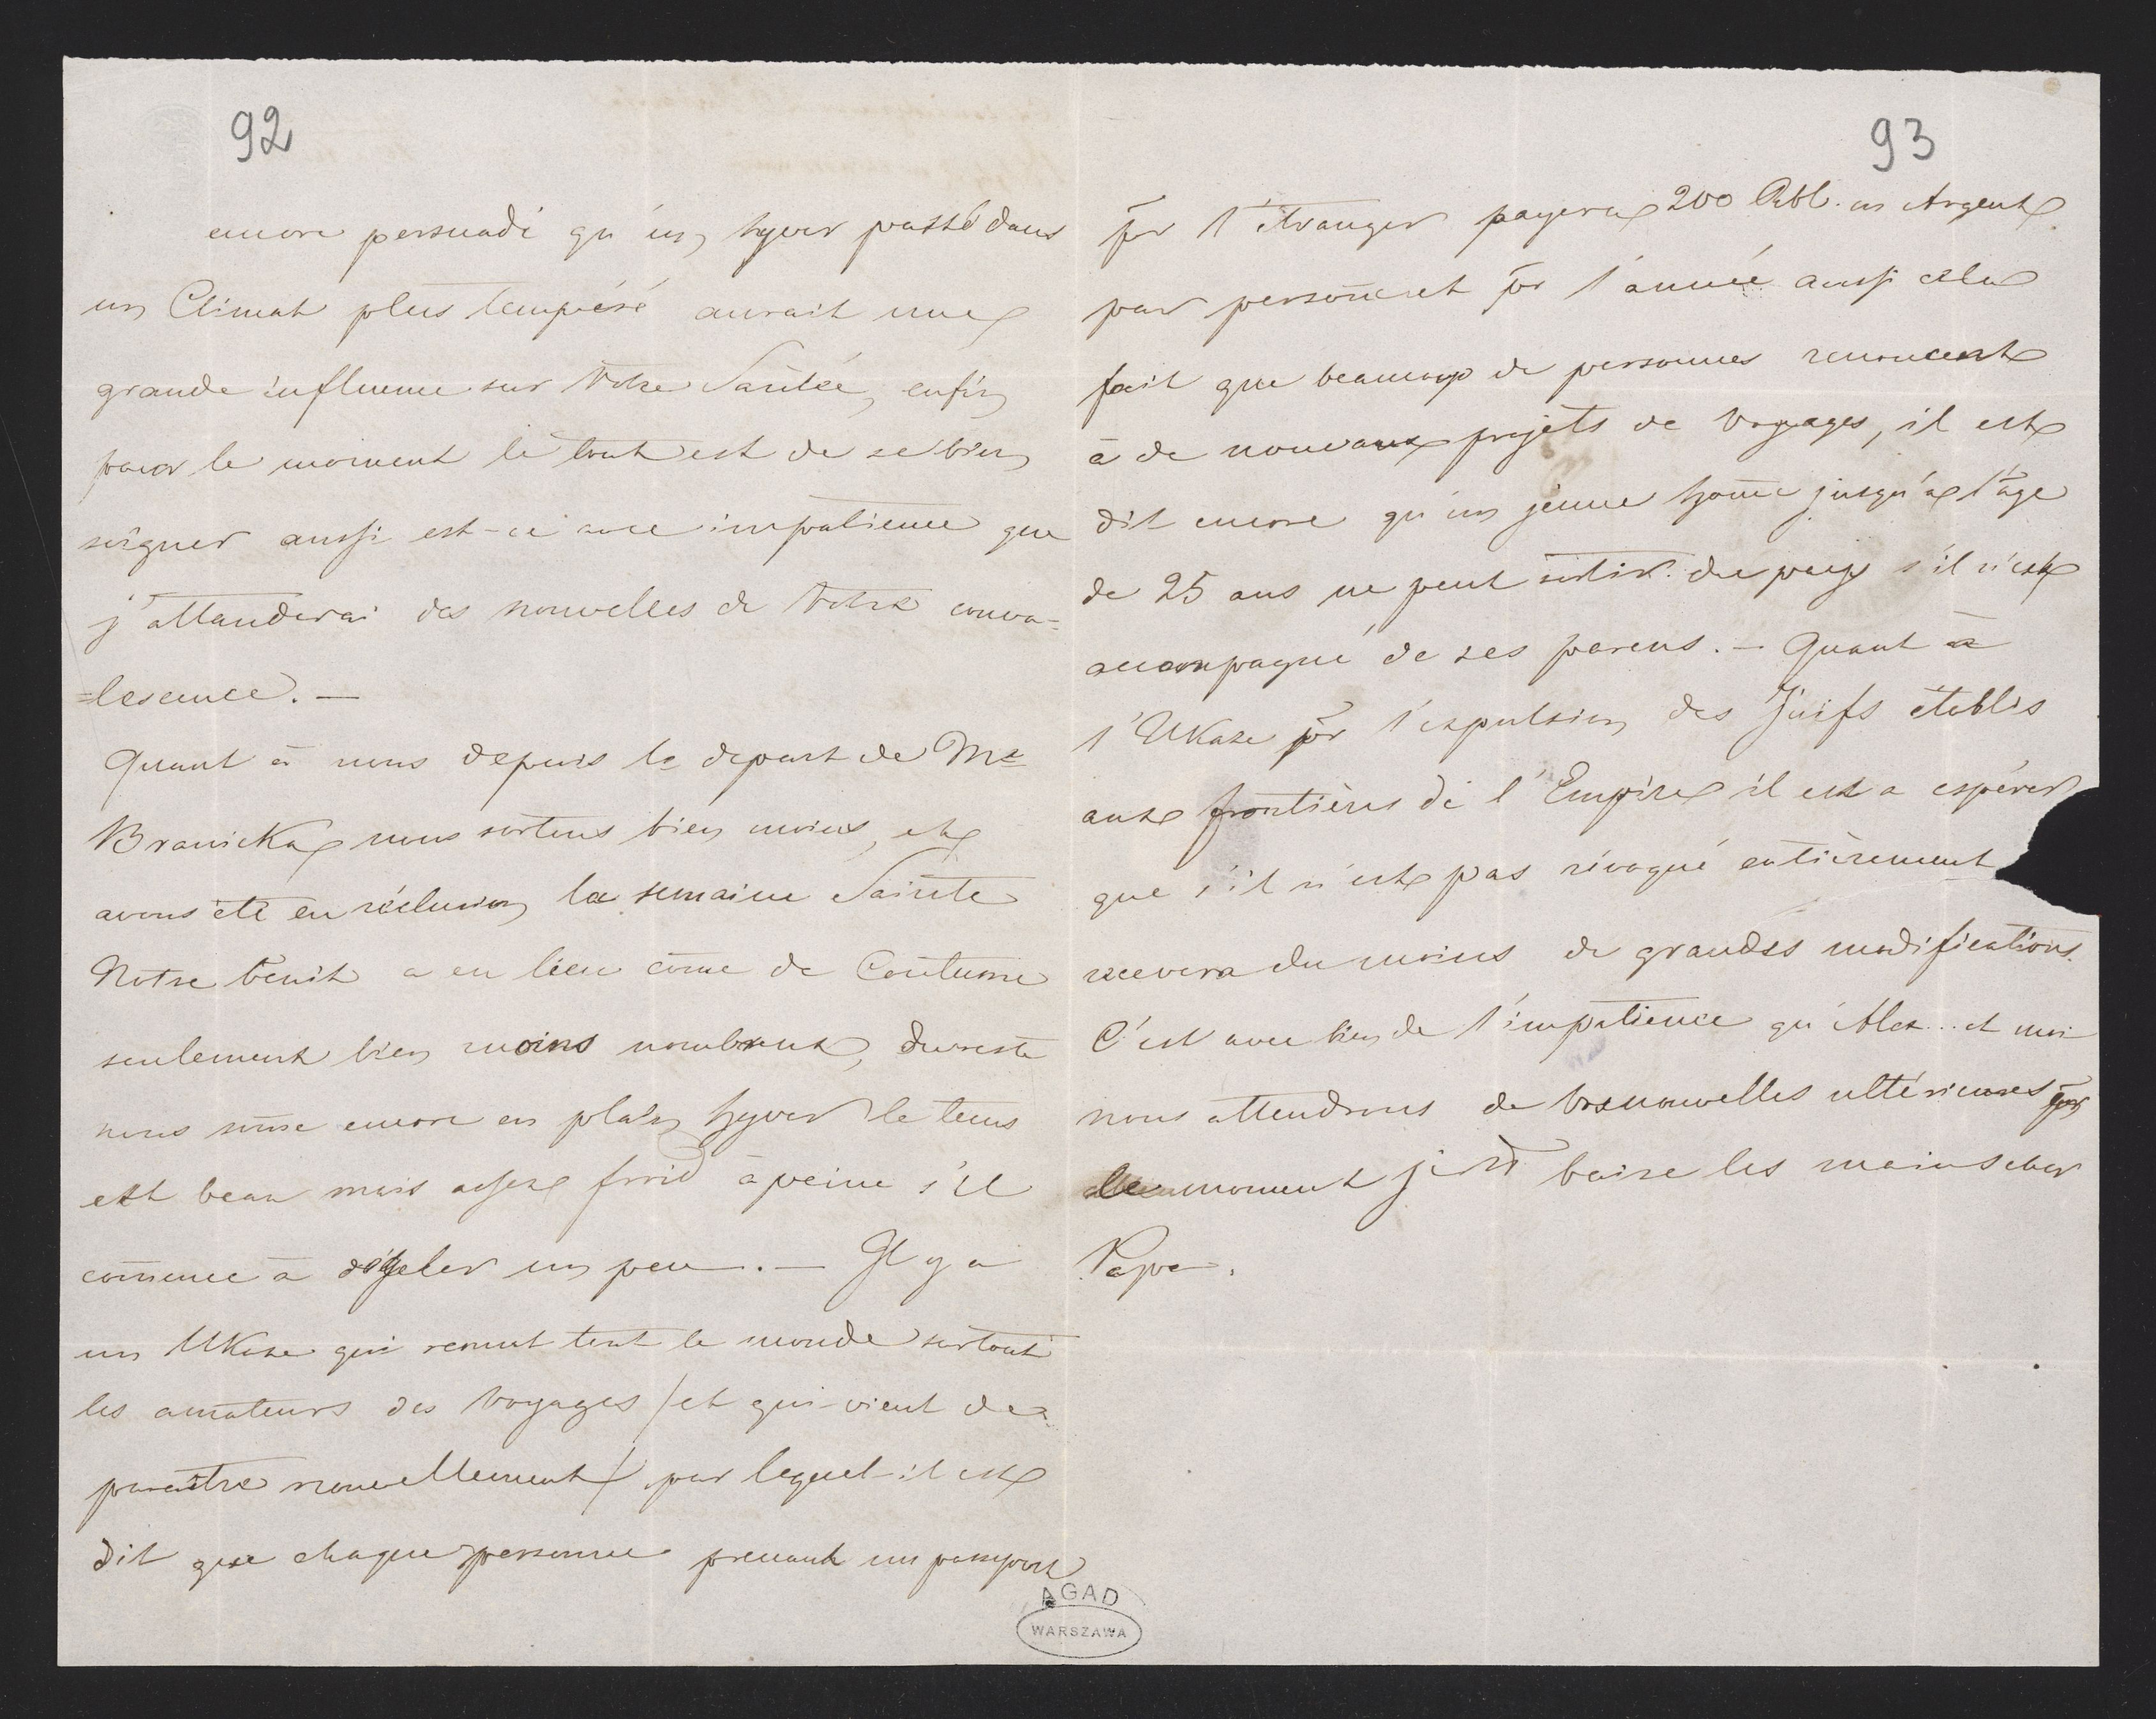 92
encore persuadé qu'un hyver passé dans
un Climat plus tempéré aurait une
grande influence sur Votre Santée, enfin
pour le moment le tout est de se bien
soigner aussi est-ce avec impatience que
j'attanderai des nouvelles de Votre conva=
=lesence. —
Quant à nous depuis le depart de Me
Branicka nous sortons bien moins, et
avons été en réclusion la semaine Sainte
Notre benit a eu lieu com̄e de Coutume
seulement bien moins nombreux, du reste
nous som̄e encore en plain hyver le tems
est beau mais assez froid à peine s'il
com̄ence à dégeler un peu. — Il y a
un Ukase qui remut tout le monde surtout
les amateurs des voyages / et qui vient de
paraître nouvellement / par lequel il est
dit que chaque personne prenant un passport
AGAD
WARSZAWA
93
p̄r l'étranger payera 200 Rbl. en Argent
par person̄e et p̄r l'année aussi cela
fait que beaucoup de personnes renoncent
à de nouveaux projets de voyages, il est
dit encore qu'un jeune hom̄e jusqu'a l'âge
de 25 ans ne peut sortir du pays s'il n'est
accompagné de ses parens. — Quant à
l'Ukase p̄r l'expulsion des Juifs établis
aux frontières de l'Empire il est a espérer
que s'il n'est pas révoqué entièrement
recevera du moins de grandes modifications.
C'est avec bien de l'impatience qu'Alex... et moi
nous attendrons de vos nouvelles ultérieures p̄r
le moment je baise les mains cher
Papa.